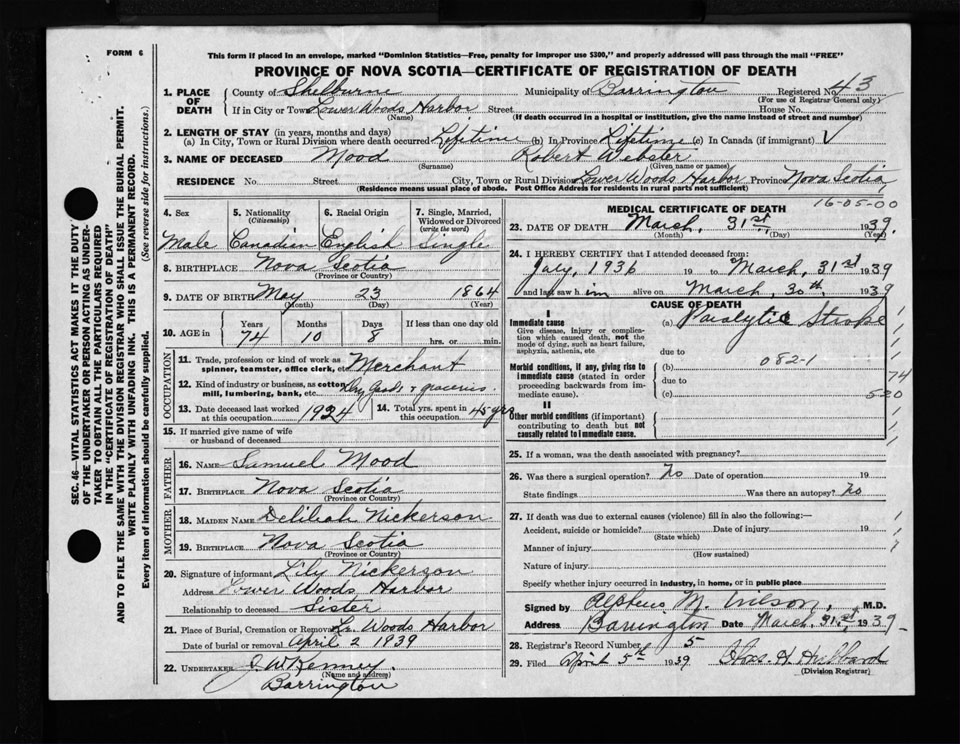 FORM 6
This form if placed in an envelope, marked "Dominion Statistics—Free, penalty for improper use $300," and properly addressed will pass through the mail "FREE"
PROVINCE OF NOVA SCOTIA—CERTIFICATE OF REGISTRATION OF DEATH
1. PLACE OF DEATH County of Shelburne Municipality of Barrington Registered No. 43
(For use of Registrar General only)
If in City or Town Lower Woods Harbor Street House No.
(Name) (If death occurred in a hospital or institution, give the name instead of street and number)
2. LENGTH OF STAY (in years, months and days)
(a) In City, Town or Rural Division where death occurred Lifetime (b) In Province Lifetime (c) In Canada (if immigrant) ✓
3. NAME OF DECEASED Mood Robert Webster
(Surname) (Given name or names)
RESIDENCE No. Street City, Town or Rural Division Lower Woods Harbor Province Nova Scotia
(Residence means usual place of abode. Post Office Address for residents in rural parts not sufficient)
4. Sex 5. Nationality (Citizenship) 6. Racial Origin 7. Single, Married, Widowed or Divorced (write the word)
Male Canadian English Single
8. BIRTHPLACE Nova Scotia
(Province or Country)
9. DATE OF BIRTH May 23 1864
(Month) (Day) (Year)
10. AGE in Years Months Days If less than one day old
74 10 8 hrs. or min.
OCCUPATION
11. Trade, profession or kind of work as spinner, teamster, office clerk, etc. Merchant
12. Kind of industry or business, as cotton mill, lumbering, bank, etc. Dry Goods & groceries.
13. Date deceased last worked at this occupation 1924 14. Total yrs. spent in this occupation 45 yrs
15. If married give name of wife or husband of deceased
FATHER
16. NAME Samuel Mood
17. BIRTHPLACE Nova Scotia
(Province or Country)
MOTHER
18. MAIDEN NAME Deliliah Nickerson
19. BIRTHPLACE Nova Scotia
(Province or Country)
20. Signature of informant Lily Nickerson
Address Lower Woods Harbor
Relationship to deceased Sister
21. Place of Burial, Cremation or Removal Lr. Woods Harbor
Date of burial or removal April 2 1939
22. UNDERTAKER J. W. Kenney.
(Name and address)
Barrington
16-05-00
MEDICAL CERTIFICATE OF DEATH
23. DATE OF DEATH March, 31st, 1939.
(Month) (Day) (Year)
24. I HEREBY CERTIFY that I attended deceased from:
July, 1936 19 to March, 31st 1939
and last saw him alive on March, 30th, 1939
CAUSE OF DEATH
I
Immediate cause (a) Paralytic Stroke
Give disease, injury or complication which caused death, not the mode of dying, such as heart failure, asphyxia, asthenia, etc
due to
Morbid conditions, if any, giving rise to immediate cause (stated in order proceeding backwards from immediate cause).
(b) 082-1
74
due to
(c) 520
II
Other morbid conditions (if important) contributing to death but not causally related to immediate cause.
25. If a woman, was the death associated with pregnancy?
26. Was there a surgical operation? No Date of operation 19
State findings Was there an autopsy? No
27. If death was due to external causes (violence) fill in also the following:—
Accident, suicide or homicide? Date of injury 19
(State which)
Manner of injury
(How sustained)
Nature of injury
Specify whether injury occurred in industry, in home, or in public place
Signed by Alpheus M. Wilson, M.D.
Address Barrington Date March, 31st, 1939
28. Registrar's Record Number 5
29. Filed April 5th 1939 H. Hubbard
(Division Registrar)
SEC. 46—VITAL STATISTICS ACT MAKES IT THE DUTY
OF THE UNDERTAKER OR PERSON ACTING AS UNDERTAKER TO OBTAIN ALL THE PARTICULARS REQUIRED
IN THE "CERTIFICATE OF REGISTRATION OF DEATH"
AND TO FILE THE SAME WITH THE DIVISION REGISTRAR WHO SHALL ISSUE THE BURIAL PERMIT.
WRITE PLAINLY WITH UNFADING INK. THIS IS A PERMANENT RECORD.
Every item of information should be carefully supplied. (See reverse side for instructions.)